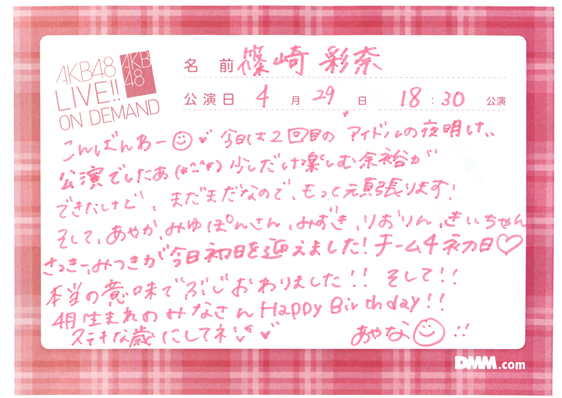 AKB48
LIVE!!
ON DEMAND
AKB
48
名 前 篠崎 彩奈
公演日 4 月 29 日 18:30 公演
こんばんわー 今日は2回目の"アイドルの夜明け"
公演でしたあ(*^^*) 少しだけ楽しむ余裕が
できたけど、まだまだなので、もっと元頑張ります!
そして、あやか、みゆぽんさん、みずき、りおりん、きぃちゃん
さっきー、みつきが今日初日を迎えました!チーム4初日♡
本当の意味でぶじおわりました!! そして!!
4月生まれのみなさんHappy Birthday!!
ステキな歳にしてネ
あやな !!
DMM.com